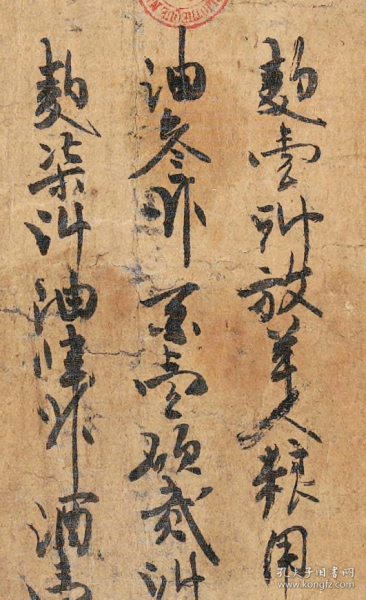 麵壹㪷放羊人粮用
油叁升粟壹碩貳㪷
麵柒㪷油肆升酒
孔夫子旧书网
www.kongfz.com